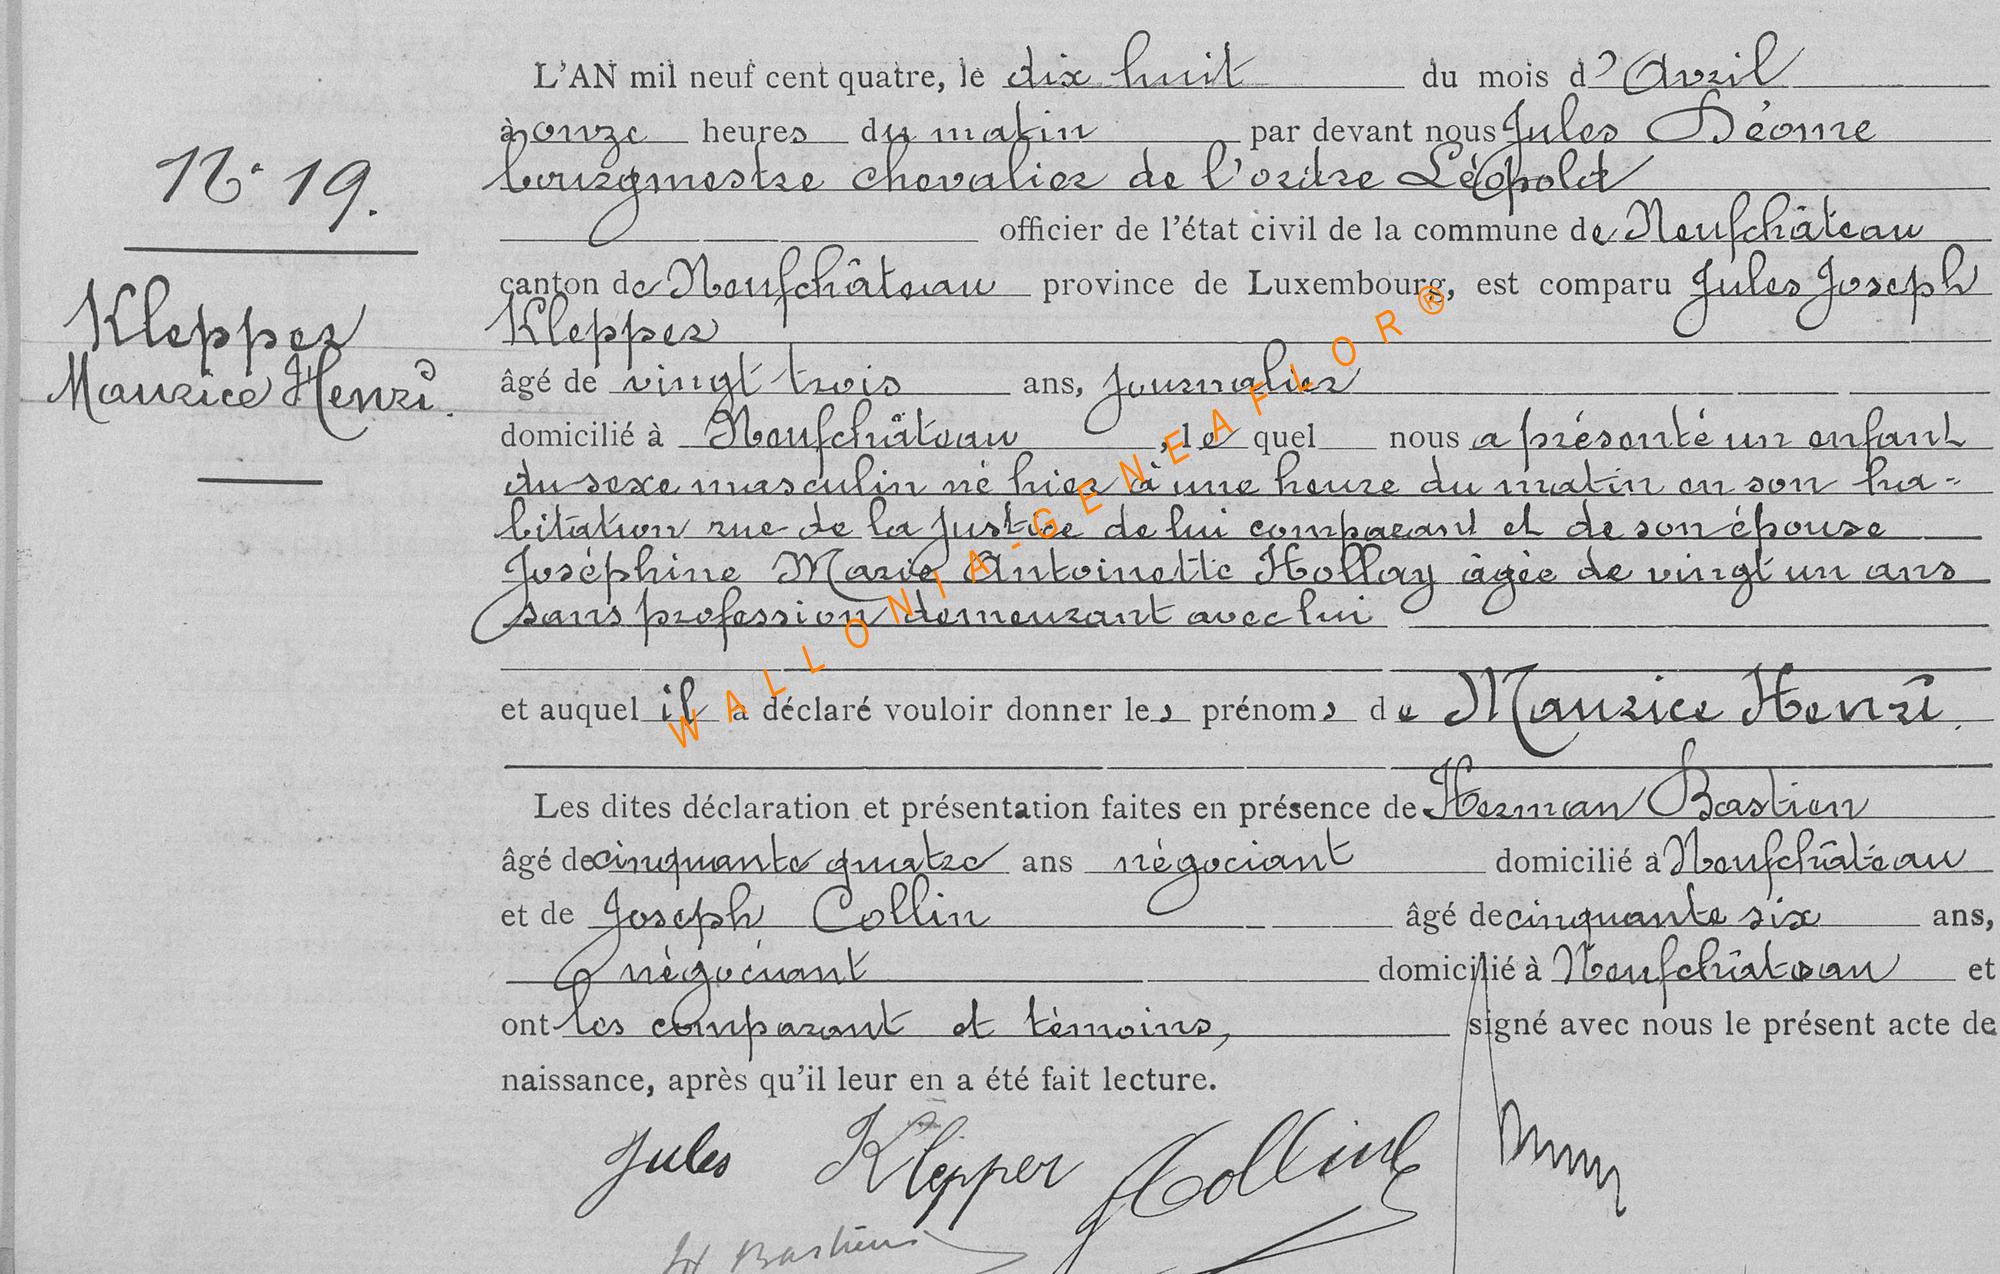 L'AN mil neuf cent quatre, le dix huit du mois d' Avril
à onze heures du matin par devant nous Jules Déome
N° 19.
bourgmestre chevalier de l'ordre Léopold
officier de l'état civil de la commune de Neufchâteau
canton de Neufchâteau province de Luxembourg, est comparu Jules Joseph
Klepper
Klepper
Maurice Henri.
âgé de vingt trois ans, journalier
domicilié à Neufchâteau, le quel nous a présenté un enfant
du sexe masculin né hier à une heure du matin en son ha-
bitation rue de la Justice de lui comparant et de son épouse
Joséphine Marie Antoinette Hollay âgée de vingt un ans
sans profession demeurant avec lui
et auquel il a déclaré vouloir donner les prénoms de Maurice Henri.
WALLONIA-GENEAFLOR®
Les dites déclaration et présentation faites en présence de Herman Bastien
âgé de cinquante quatre ans négociant domicilié à Neufchâteau
et de Joseph Collin âgé de cinquante six ans,
négociant domicilié à Neufchâteau et
ont les comparant et témoins, signé avec nous le présent acte de
naissance, après qu'il leur en a été fait lecture.
Jules Klepper Collin
H Bastien